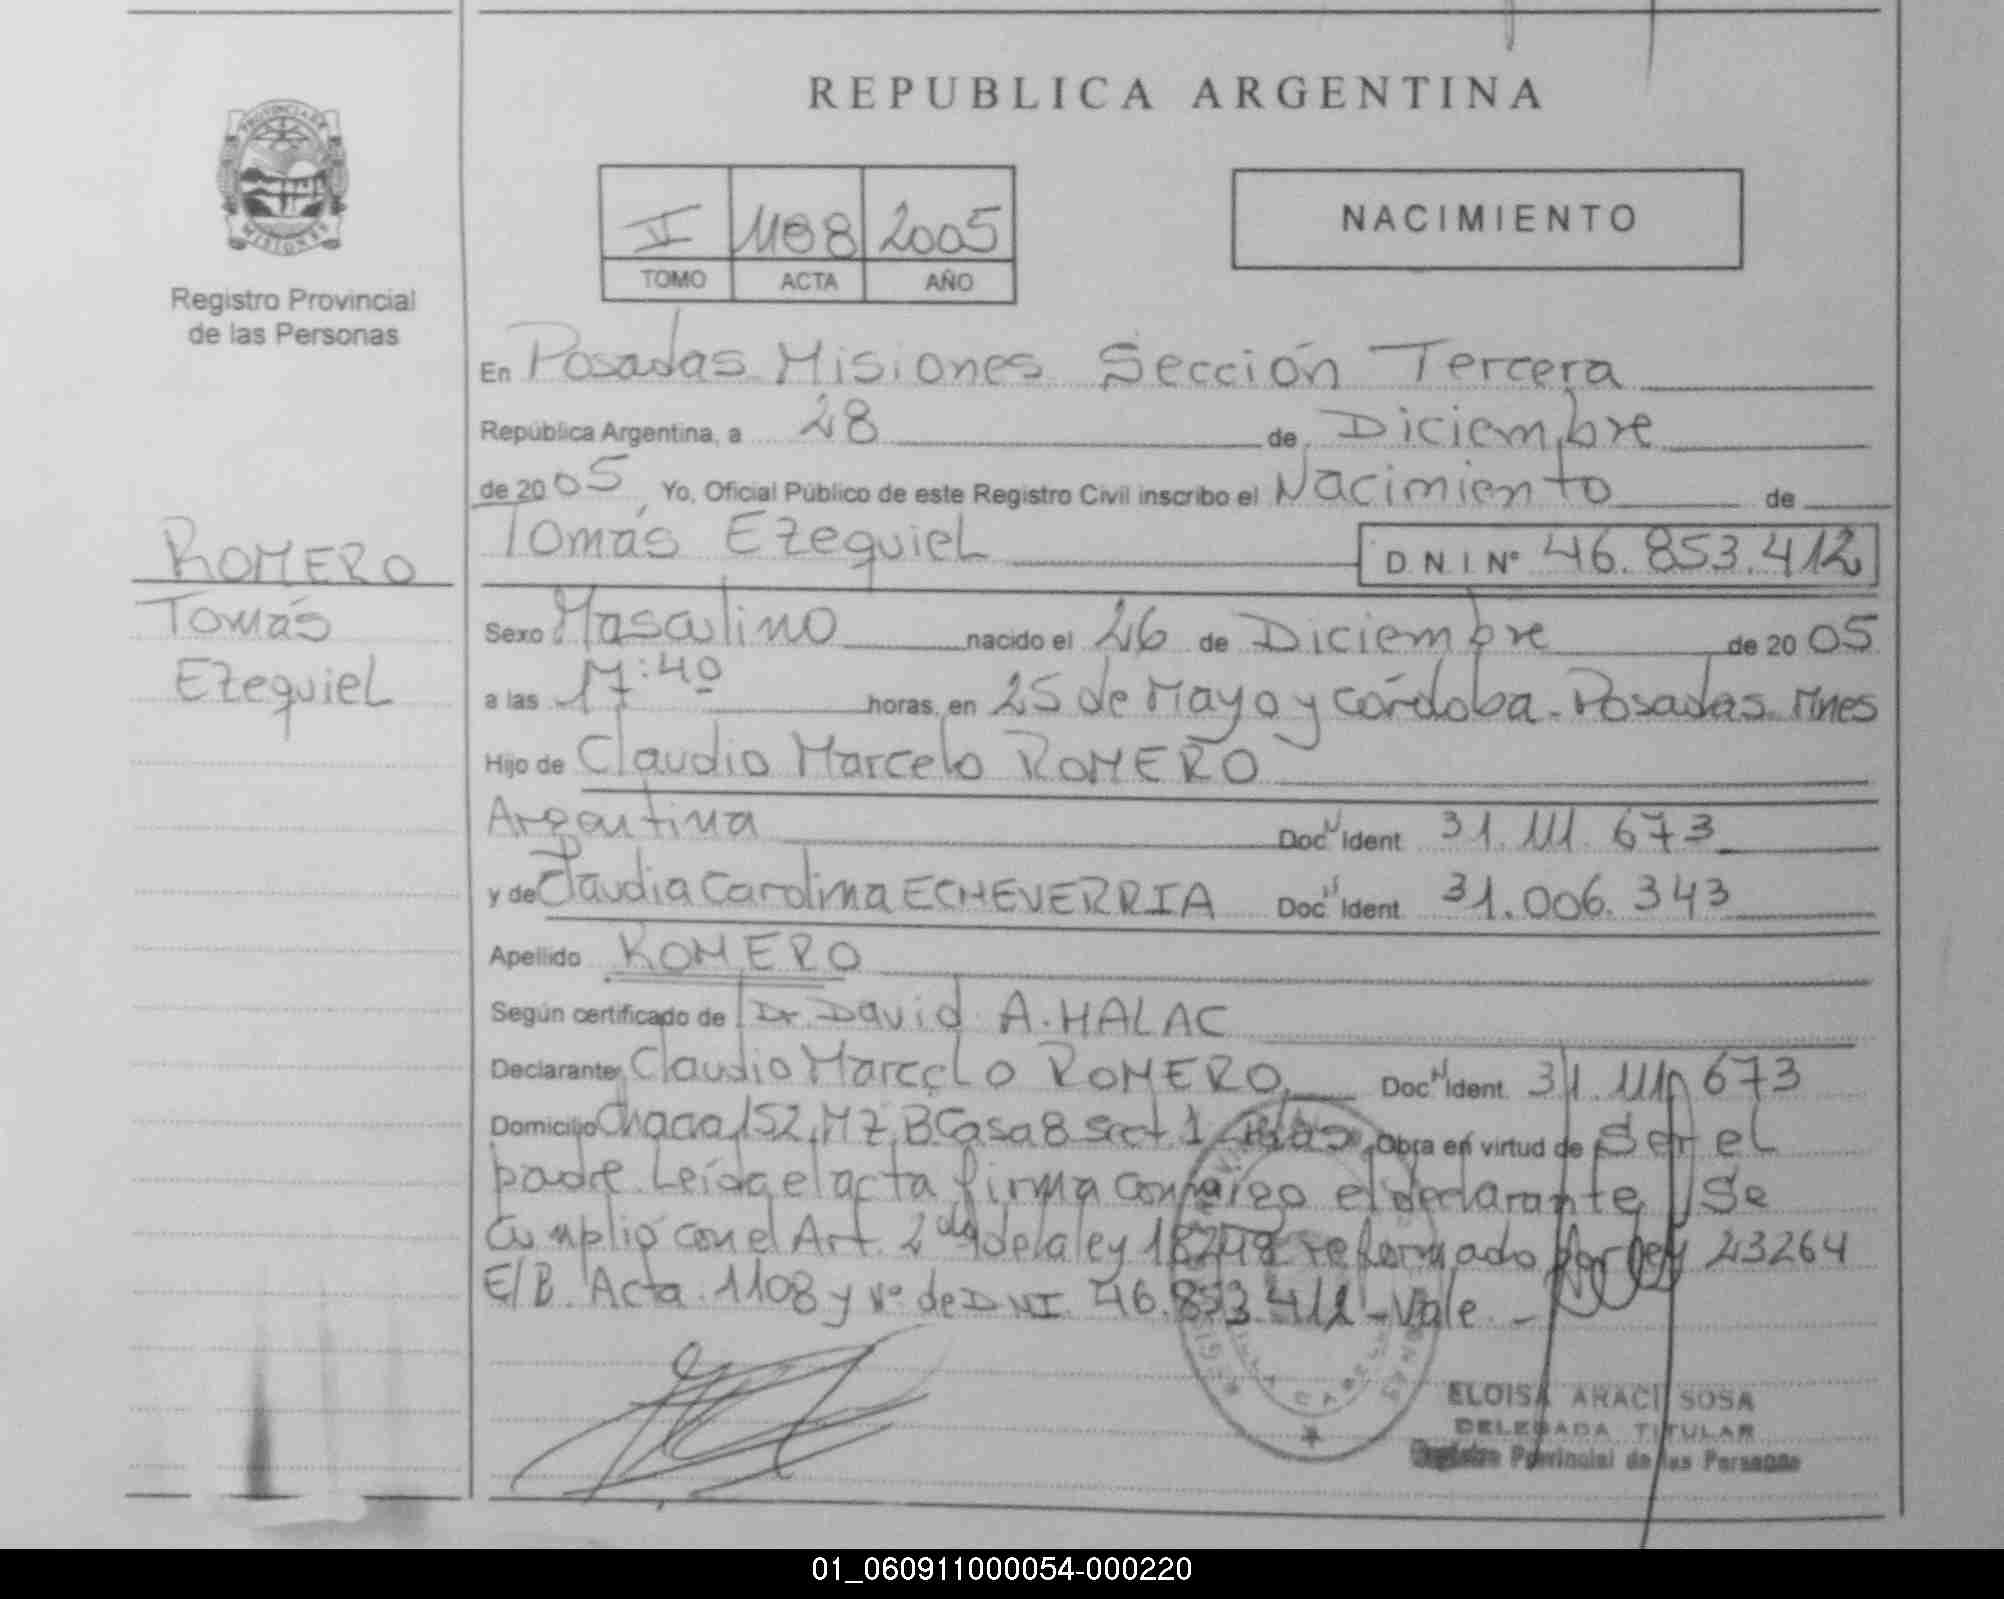 REPUBLICA ARGENTINA
PROVINCIA DE
MISIONES
Registro Provincial
de las Personas
V 1108 2005
TOMO ACTA AÑO
NACIMIENTO
En Posadas Misiones Sección Tercera
República Argentina, a 28 de Diciembre
de 2005 Yo, Oficial Público de este Registro Civil inscribo el Nacimiento de
Tomás Ezequiel D N I Nº 46.853.412
ROMERO
Tomás
Ezequiel
Sexo Masculino nacido el 26 de Diciembre de 2005
a las 17:40 horas, en 25 de Mayo y Córdoba - Posadas Mnes
Hijo de Claudio Marcelo ROMERO
Argentina Doc N Ident 31.111.673
y de Claudia Carolina ECHEVERRIA Doc N Ident 31.006.343
Apellido ROMERO
Según certificado de Dr. David A. HALAC
Declarante Claudio Marcelo ROMERO Doc N Ident. 31.111.673
Domicilio Chacra 152, MZ, B Casa 8 Sect 1 Obra en virtud de Ser el
padre. Leída el acta firma conmigo el declarante Se
Cumplió con el Art. 2 de la ley 18248 reformado por ley 23264
E/B. Acta. 1108 y Nº de DNI. 46.853.412 - Vale. -
ELOISA ARACI SOSA
DELEGADA TITULAR
Registro Provincial de las Personas
01_060911000054-000220